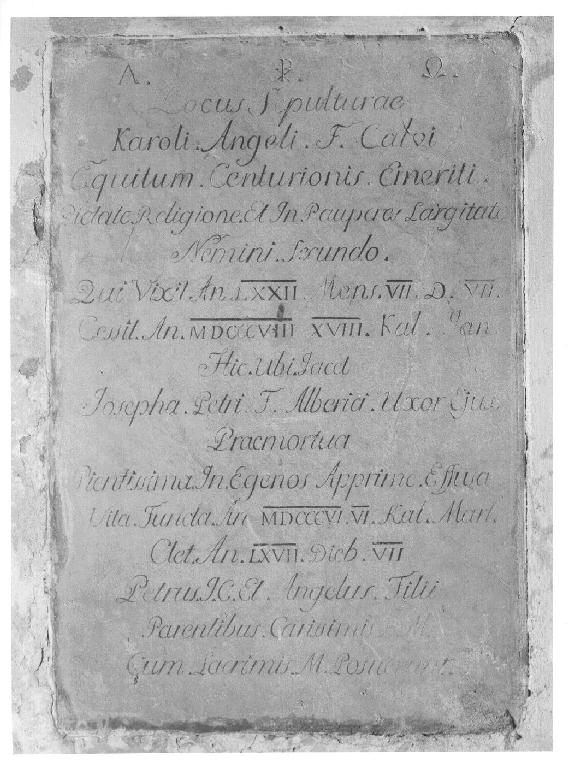 Α. ☧. Ω.
Locus Sepulturae
Karoli. Angeli. F. Calvi
Equitum. Centurionis. Emeriti.
Pietate. Religione. Et In Pauperes Largitate
Nemini. Secundo.
Qui Vixit. An. LXXII Mens. VII. D. VII.
Cessit. An. MDCCCVIII XVIII. Kal. Jan
Hic. Ubi. Jacet
Josepha. Petri. F. Alberici. Uxor Ejus.
Praemortua
Pientissima. In. Egenos Apprime. Effusa
Vita. Functa. An MDCCCVI. VI. Kal. Mart.
Aet. An. LXVII. Dieb. VII
Petrus. J. C. Et. Angelus. Filii
Parentibus. Carissimis M.
Cum. Lacrimis. M. Posuerunt.